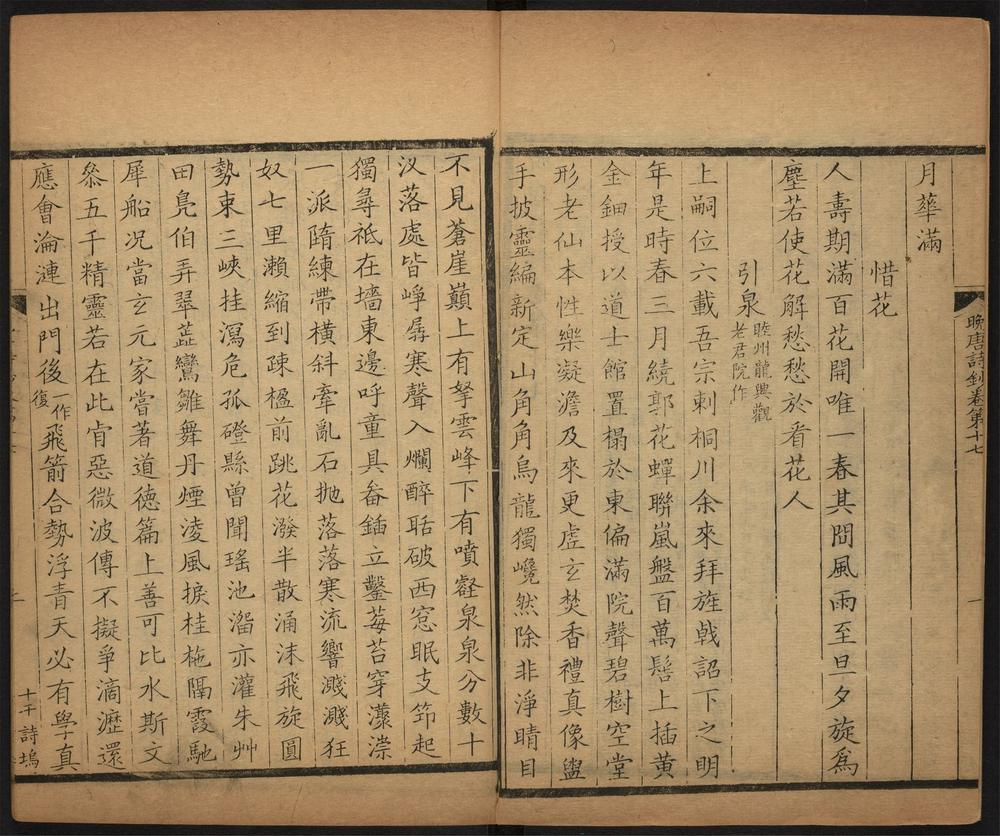 晚唐詩鈔卷第十七
一
月華滿
惜花
人壽期滿百花開唯一春其間風雨至旦夕旋爲
塵若使花解愁愁於看花人
引泉睦州龍興觀老君院作
上嗣位六載吾宗刺桐川余來拜旌戟詔下之明
年是時春三月繞郭花蟬聯嵐盤百萬髻上插黃
金鈿授以道士館置榻於東偏滿院聲碧樹空堂
形老仙本性樂凝澹及來更虛玄焚香禮真像盥
手披靈編新定山角角烏龍獨巉然除非淨晴目
不見蒼崖巔上有拏雲峰下有噴壑泉泉分數十
汊落處皆崢𡾋寒聲入爛醉聒破西窓眠支筇起
獨尋祇在墻東邊呼童具畚鍤立鑿莓苔穿濛濴
一派墮練帶橫斜牽亂石拋落落寒流響濺濺狂
奴七里瀨縮到疎楹前跳花潑半散涌沫飛旋圓
勢束三峽挂瀉危孤磴懸曾聞瑤池溜亦灌朱艸
田鳧伯弄翠蕋鸞雛舞丹煙淩風捩桂柂隔霞馳
犀船况當玄元家嘗著道德篇上善可比水斯文
叅五千精靈若在此肎惡微波傳不擬爭滴瀝還
應會淪漣出門後一作復飛箭合勢浮青天必有學真
十干詩塢